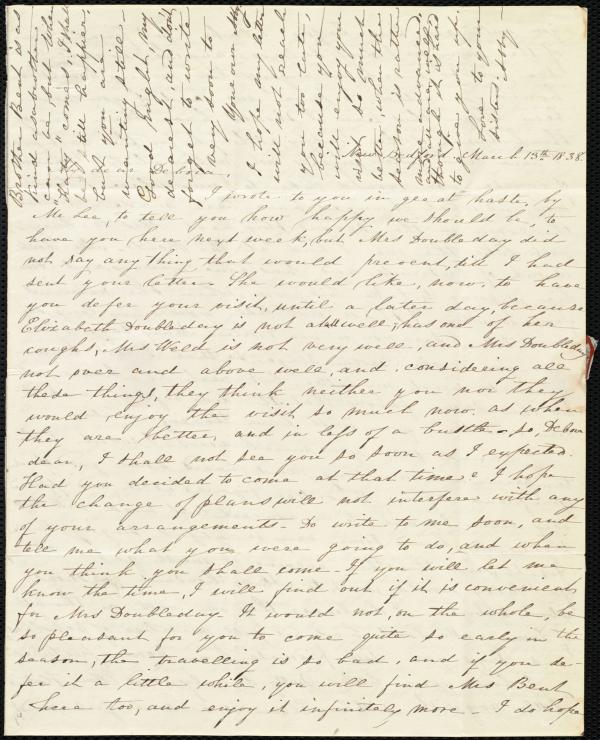 New Bedford, March 13th 1838.
My dear Debora,
I wrote to you in great haste, by
Mr Lee, to tell you how happy we should be, to
have you here next week, but Mrs Doubleday did
not say any thing that would prevent, till I had
sent your letter. She would like, now, to have
you defer your visit, until a later day, because
Elizabeth Doubleday is not at all well, has one of her
coughs, Mrs Weld is not very well, and Mrs Doubleday
not over and above well, and, considering all
these things, they think neither you nor they
would enjoy the visit so much now, as when
they are better, and in less of a bustle. So, Debora
dear, I shall not see you so soon as I expected.
Had you decided to come at that time? I hope
the change of plans will not interfere with any
of your arrangements. Do write to me soon, and
tell me what you were going to do, and when
you think you shall come. If you will let me
know the time, I will find out if it is convenient
for Mrs Doubleday. It would not, on the whole, be
so pleasant for you to come quite so early in the
season, the travelling is so bad, and if you de-
fer it a little while, you will find Mrs Bent
here too, and enjoy it infinitely more. I do hope
Brother Bent is as
kind as a brother
can be, but when
"Hetty" comes, I shall
be still happier,
but you are
wanting still.
Good night, my
dearest, and don't
forget to write
very soon to
Your own
I hope my letter
will not reach
you too late,
because you
will enjoy your
visit so much
better, when the
season is rather
more advanced,
and all are well,
though it is hard
to give you up.
Love to your
sisters.